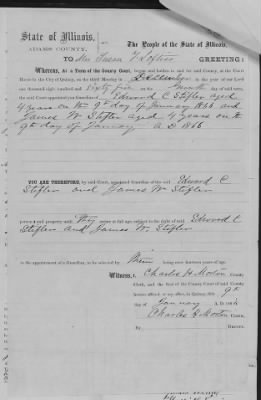 State of Illinois,
ADAMS COUNTY.
The People of the State of Illinois,
To Mrs Susan F Stifler GREETING:
Whereas, At a Term of the County Court, begun and holden in and for said County, at the Court
House in the City of Quincy, on the third Monday in December in the year of our Lord
one thousand eight hundred and Sixty five on the day of said term,
the said Court appointed you Guardian of Edward C Stifler aged
4 years on the 9th day of January 1866 and
James W Stifler aged 4 years on the
9th day of January A D 1866
YOU ARE THEREFORE, by said Court, appointed Guardian of the said Edward C
Stifler and James W Stifler
person and property until They come of full age subject to the right of said Edward C
Stifler and James W Stifler
to the appointment of a Guardian, to be selected by them being over fourteen years of age.
Witness, Charles H Morton County
Clerk, and the Seal of the County Court of said County
hereunto affixed, at my office, in Quincy, this 9th
day of January A. D. 1866
Charles H Morton Clerk,
By Deputy.